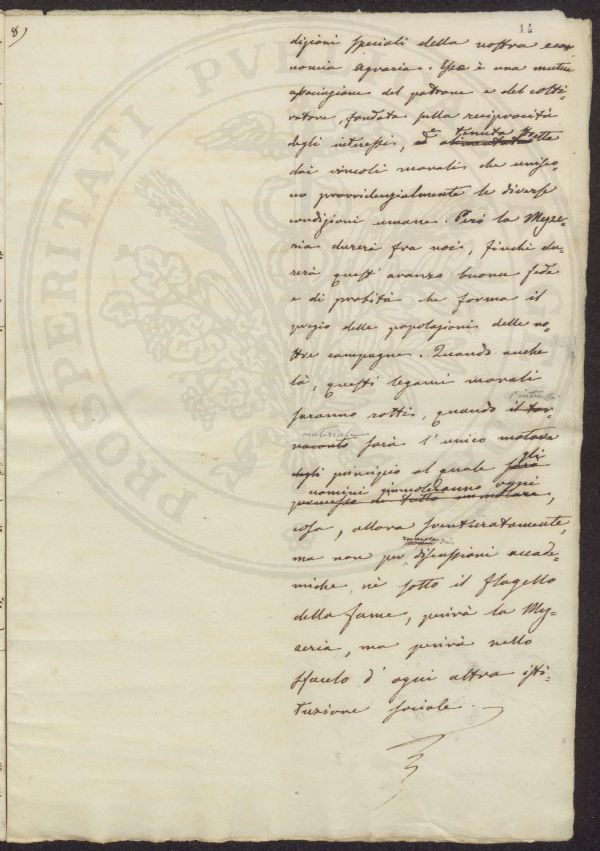 8)
14
dizioni speciali della nostra eco-
nomia agraria. Essa è una mutua
associazione del padrone e del colti-
vatore, fondata sulla reciprocità
degli interessi, ed è tenuta stretta
dai vincoli morali che unisco-
no provvidenzialmente le diverse
condizioni umane. Però la Mezze-
ria durerà fra noi, finchè du-
rerà quest'avanzo buona fede
e di probità che forma il
pregio delle popolazioni delle no-
stre campagne. Quando anche
là, questi legami morali
saranno rotti, quando l'interesse
materiale sarà l'unico motore
degli principio al quale gli
uomini immoleranno ogni
promesso di tutto immolare,
cosa, allora sventuratamente,
ma non per discussioni accade-
miche, nè sotto il flagello
della fame, perirà la Mez-
zeria, ma perirà nello
sfacelo d'ogni altra isti-
tuzione sociale.
PROSPERITATI PVBLICAE